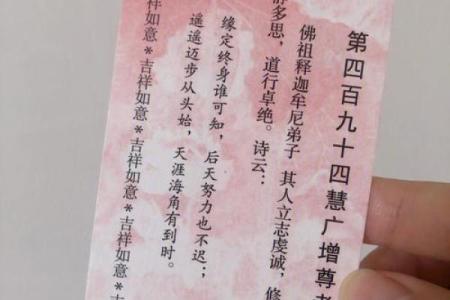 第四百九十四慧广增尊
佛祖释迦牟尼弟子 其人立志虔诚，修
静多思，道行卓绝。诗云：
缘定终身谁可知，后天努力也不迟；
遥遥迈步从头始，天涯海角有到时。
吉祥如意*吉祥如意*吉祥如意*吉祥如意